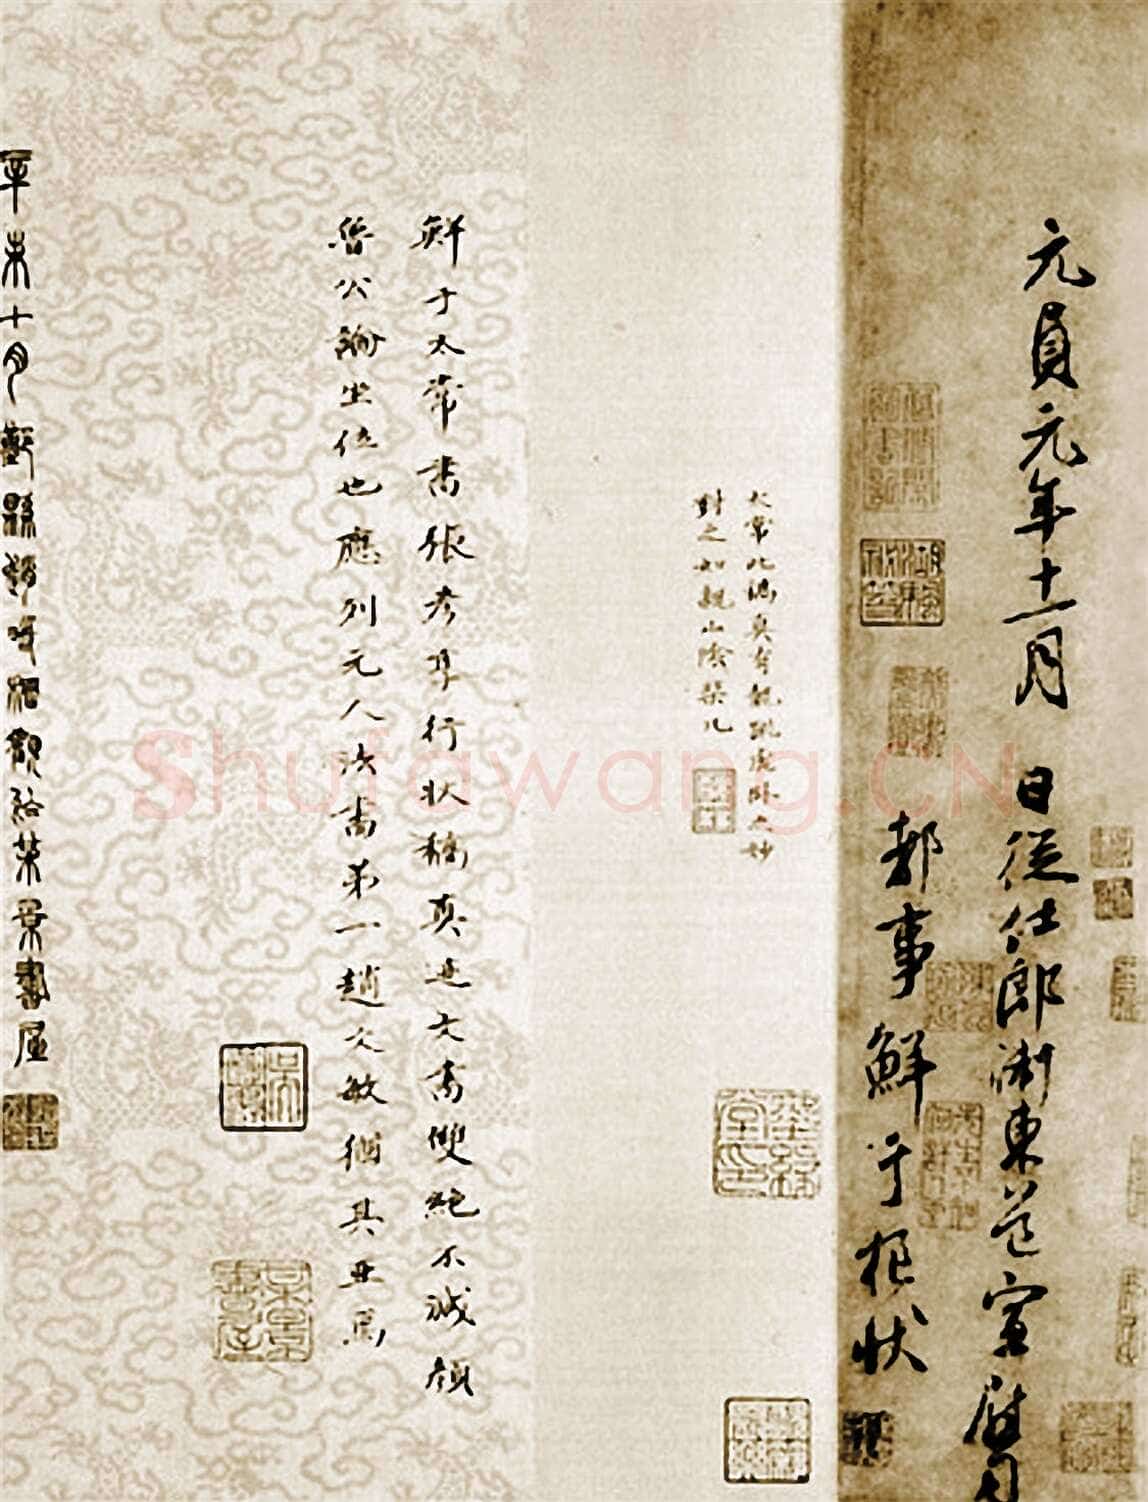 元貞元年十一月 日從仕郎浙東道宣慰司
都事鮮于樞狀
太常此稿真有龍跳虎臥之妙
對之如親山陰棐几
鮮于太常書張彥享行狀稿真迹文書雙絕不減顏
魯公論坐位也應列元人法書弟一趙文敏猶其亞焉
辛未十月 縣 觀於 景書屋
Shufawang.CN